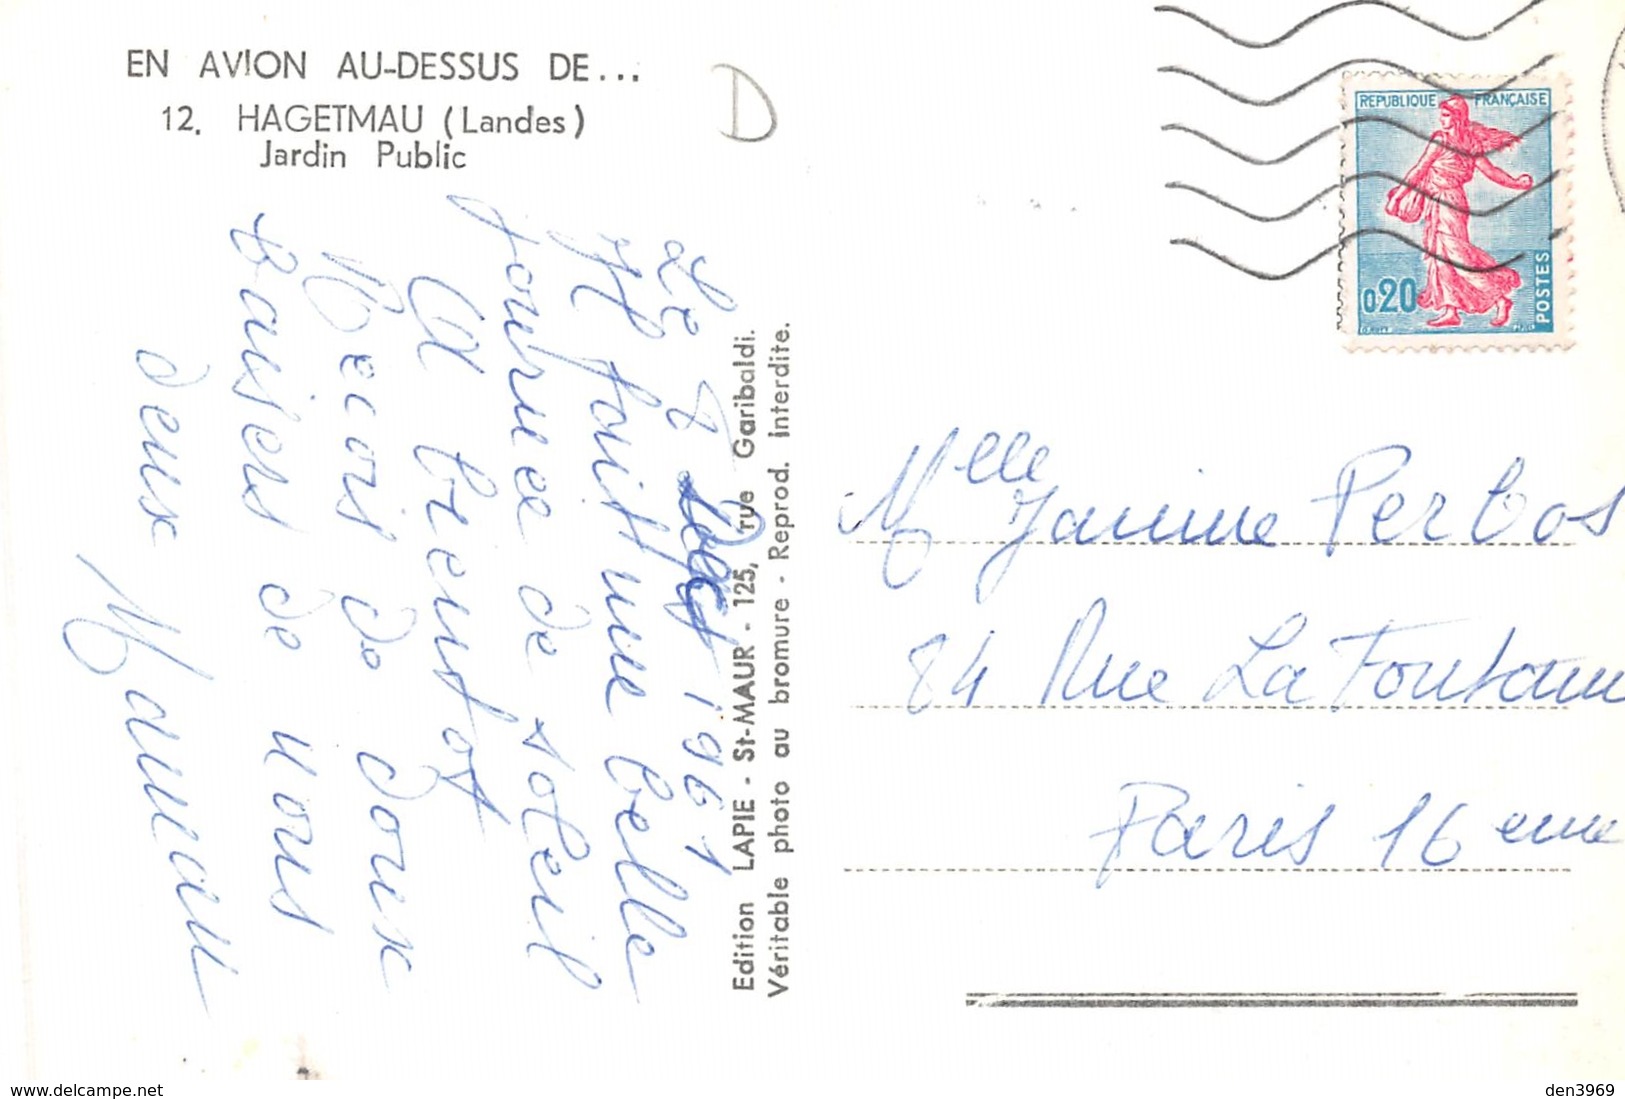 EN AVION AU-DESSUS DE...
12. HAGETMAU (Landes)
Jardin Public
D
Le 8 1961
fait une belle
journée de soleil
A bientôt
de doux
Baisers de nous
deux
Maman
Edition LAPIE - St-MAUR - 125, rue Garibaldi.
Véritable photo au bromure - Reprod. Interdite.
REPUBLIQUE FRANÇAISE
0,20
POSTES
Mlle Janine Perbos
84 Rue La Fontaine
Paris 16 eme
www.delcampe.net
den3969